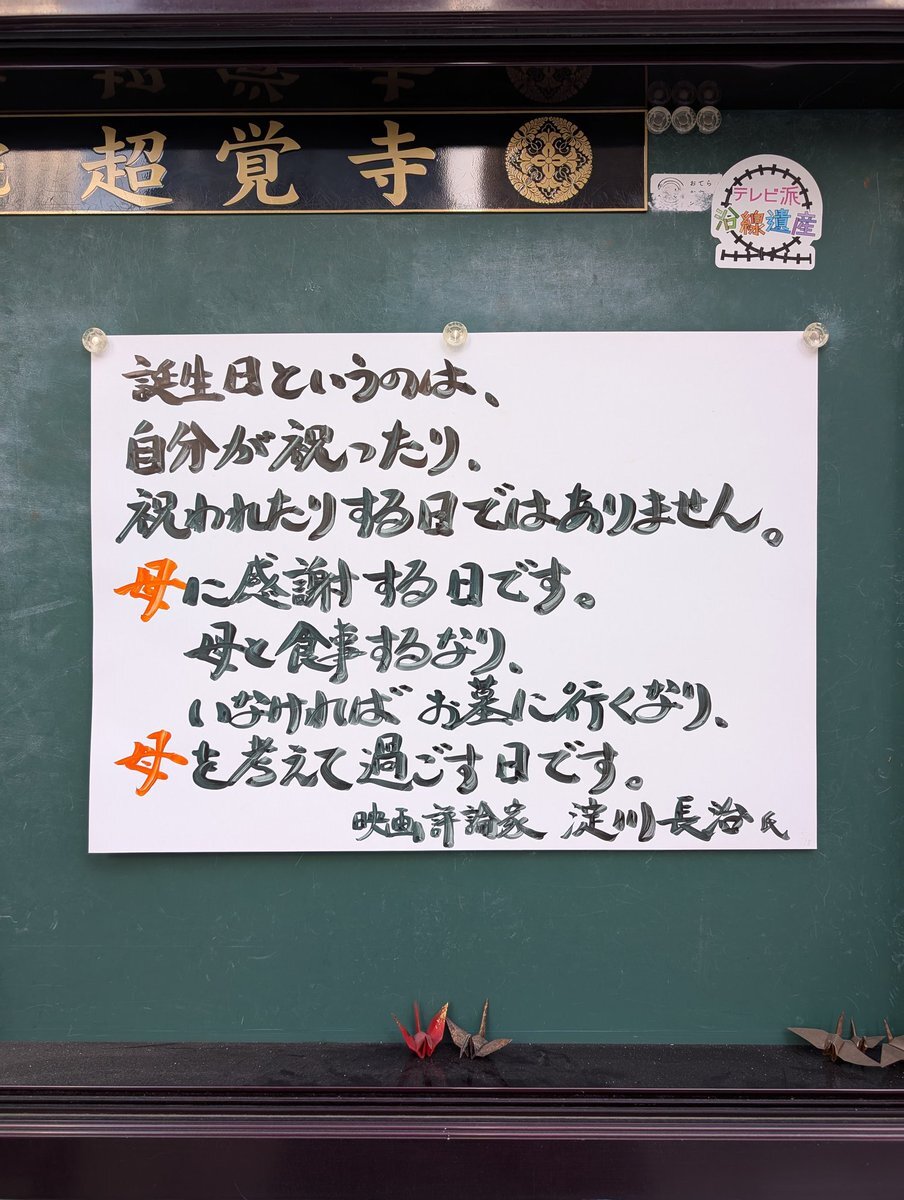 超覚寺
おてら
テレビ派
沿線遺産
誕生日というのは、
自分が祝ったり、
祝われたりする日ではありません。
母に感謝する日です。
母と食事するなり、
いなければお墓に行くなり、
母を考えて過ごす日です。
映画評論家 淀川長治氏